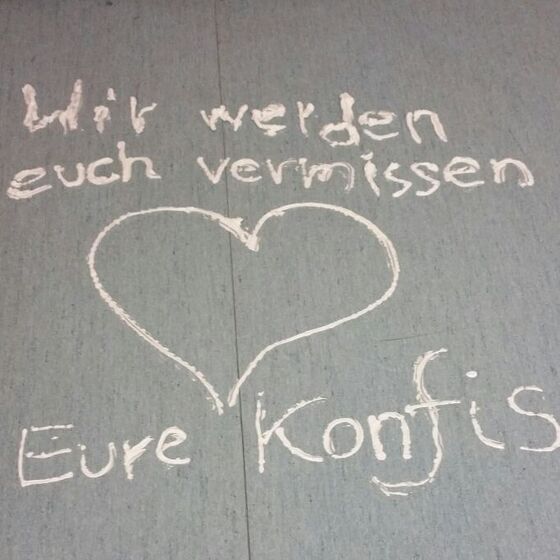 Wir werden
euch vermissen
Eure Konfis